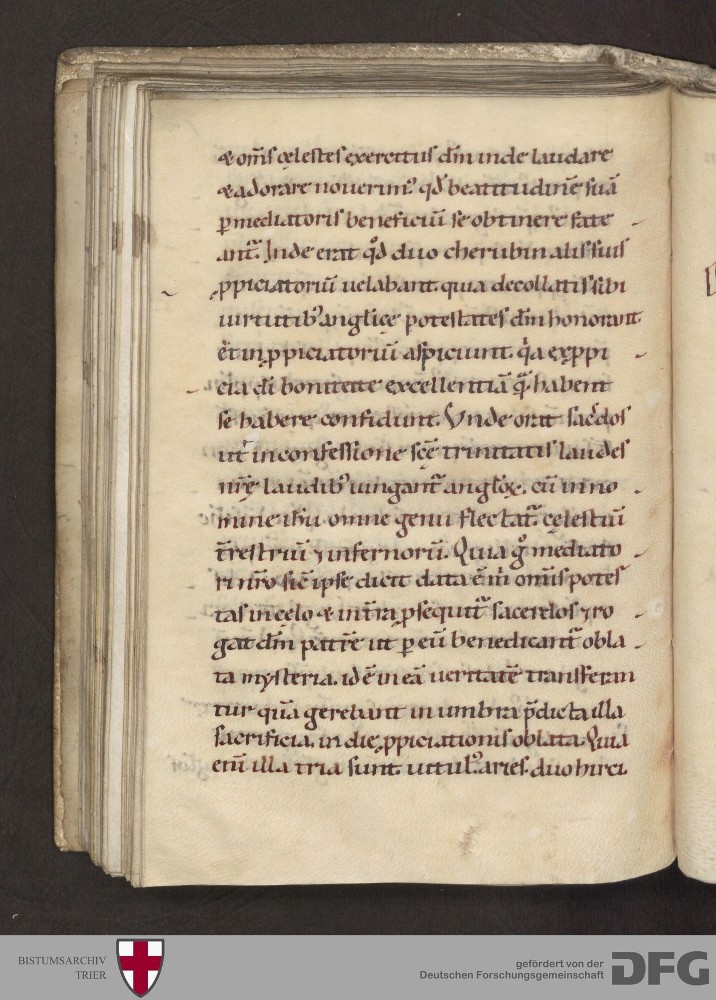 & om̅s cęlestes exercitus dm̅ inde laudare
& adorare nouerim᷒ qđ beatitudinē suā
ꝑ mediatoris beneficiū se obtinere fate
ant᷑. Inde erat qđ duo cherubin alis suis
ꝓpiciatoriū uelabant. quia decollatis sibi
uirtutib᷒ angl̅icę potestates dm̅ honorant.
et in ꝓpiciatoriū aspiciunt. q̇a ex ꝓpi
cia di̅ bonitate excellentiā quā habent
se habere confidunt. Vnde orat sac̓dos
ut in confessione sc̅ę trinitatis laudes
nr̅ę laudib᷒ iungant᷑ angl̅oꝝ. cū in no
mine ih̅u omne genu flectat᷑. cęlestiū
t̅restriū ⁊ infernorū. Quia g̊ mediato
ri nr̅o sic̅ ipse dicit data ē m̓ om̅is potes
tas in cęlo & in t̅ra ꝓsequit᷑ sacerdos ⁊ ro
gat dm̅ patrē ut ꝑ eū benedicant᷑ obla
ta mysteria. id ē in eā ueritatē transferan
tur quā gerebant in umbra p̅dicta illa
sacrificia. in die ꝓpiciationis oblata. Quia
eni̅ illa tria sunt. uitul᷒. aries. duo hirci.
BISTUMSARCHIV
TRIER
gefördert von der
Deutschen Forschungsgemeinschaft
DFG